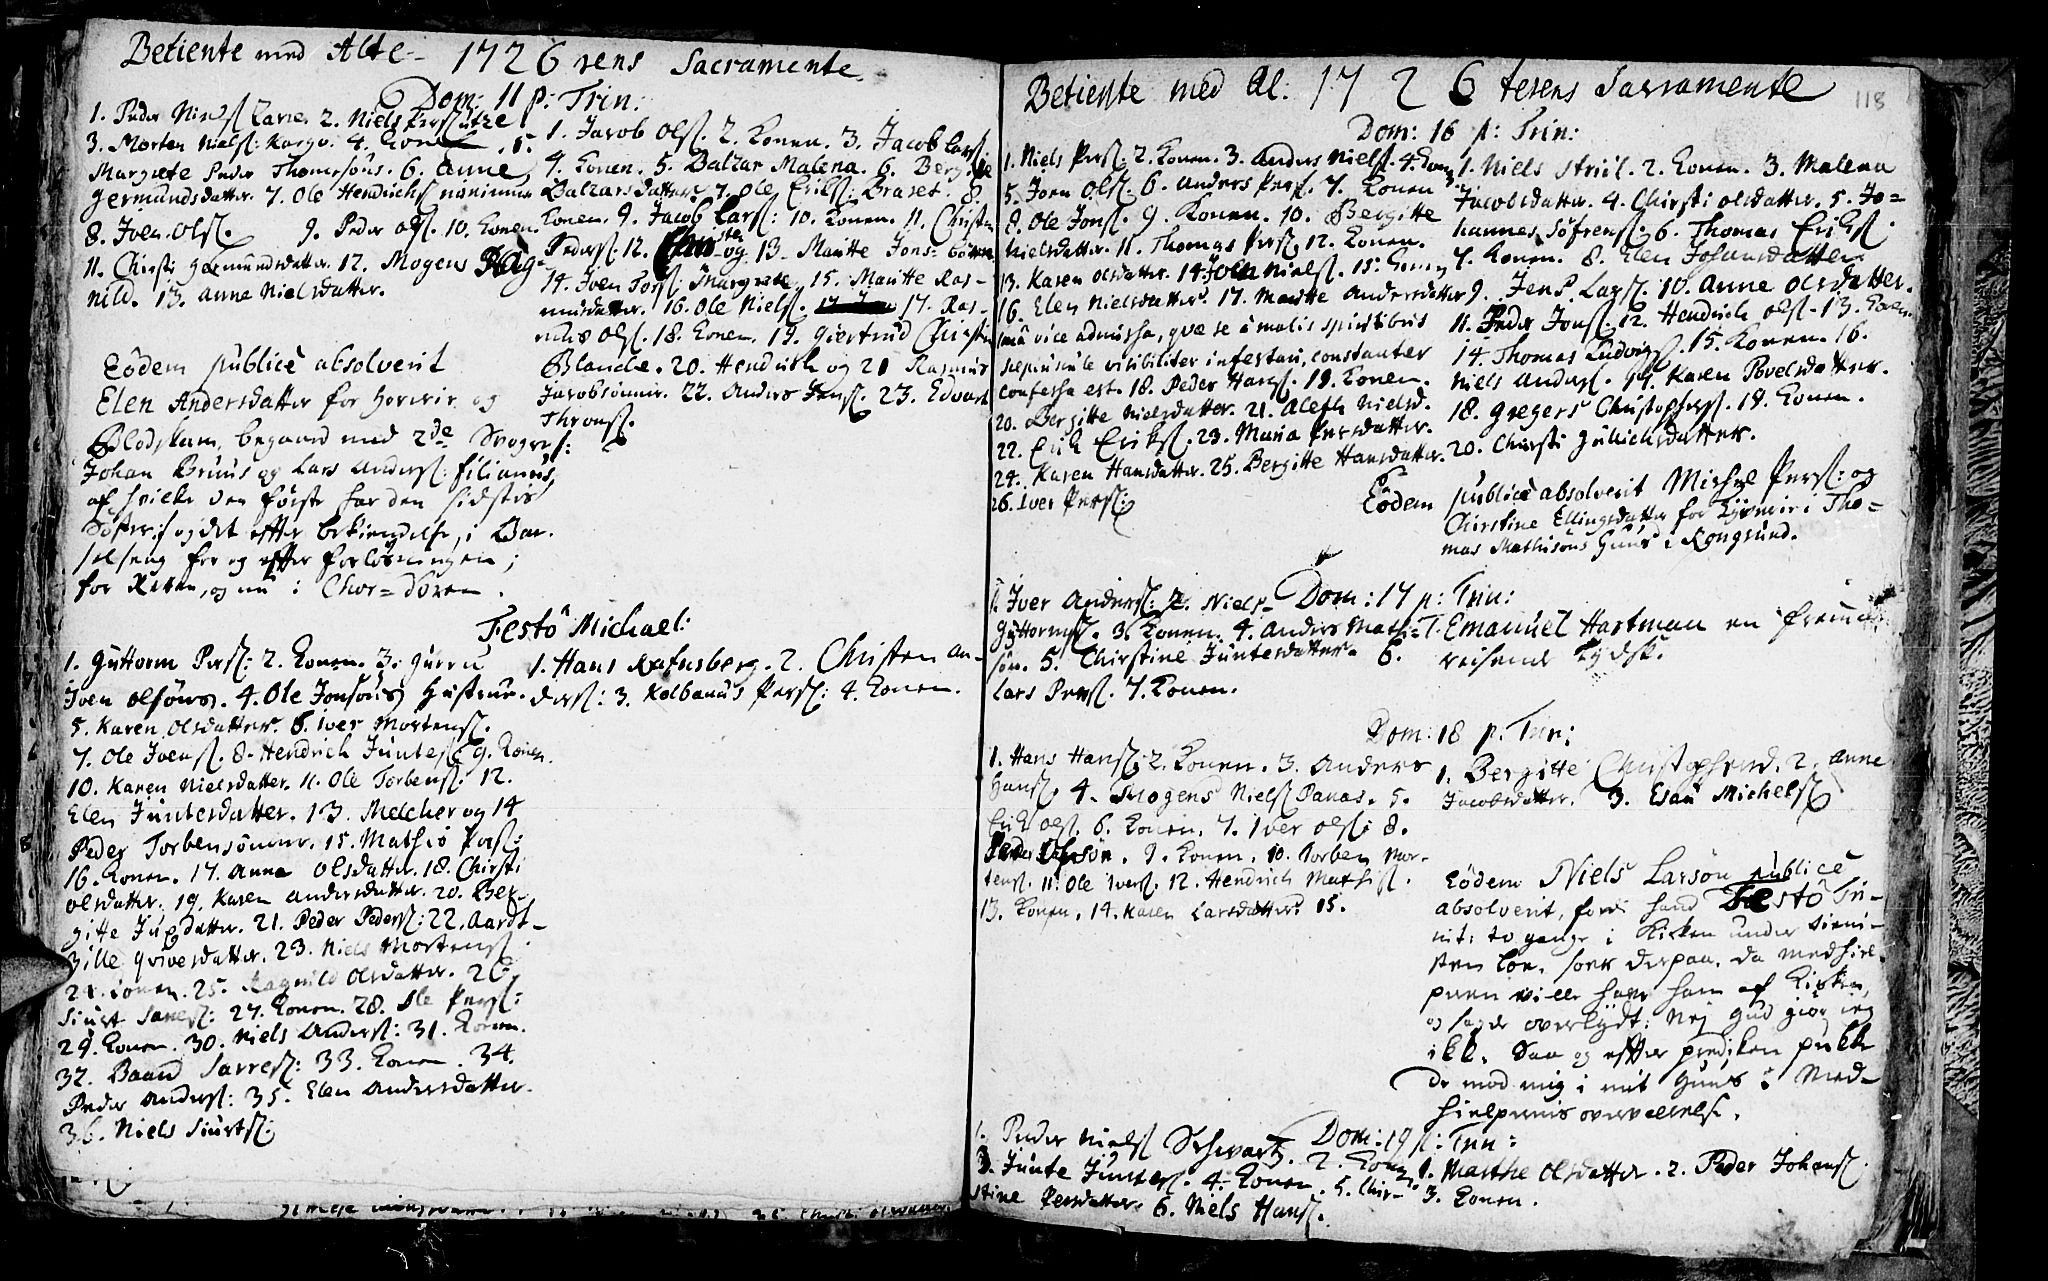 Betiente med Alte- 1726 rens Sacramente
Dom: 11 p: Trin:
1. Peder Niels: 2. Niels
3. Morten Niels: 4. Konen 5.
Margrete Peder Thomesöns. 6. Anne
Germundsdatter. 7. Ole Hendrichs
8. Iven Ols. 9. Peder Ols. 10. Konen.
11. Chirsti Germundsdatter. 12. Mogens
nild. 13. Anne Nielsdatter.
1. Jacob Ols. 2. Konen. 3. Jacob Lars.
4. Konen. 5. Balzar Malena. 6. Bergitte
Balzarsdatter. 7. Ole Eriks: Braset. 8.
Konen. 9. Jacob Lars: 10. Konen. 11. Christen
Peders. 12. og 13. Maritte Jons=
14. Iven Margrete. 15. Maritte Ras-
musdatter. 16. Ole Niels. 17. Ras-
mus Ols. 18. Konen. 19. Giertrud Chirstin
Blanche. 20. Hendrich og 21 Rasmus
Jacobsönner. 22. Anders Jens. 23. Edvart
Throns.
Eödem publicè absolverit
Elen Andersdatter for Horerie og
Blodskam, begaaed med 2de Svogers:
Johan Bruus og Lars Anders: Filianus,
af hvilke den første har den sidstes
Søster: og det efter bekiendelse, i Bar-
selseng før og efter forløsningen;
for Retten, og nu i Chor=Døren.
Festô Michael:
1. Guttorm Pers: 2. Konen. 3. Gurru
Iven Olsöns. 4. Ole Jonsöns Hustrue.
5. Karen Olsdatter. 6. Iver Mortens.
7. Ole Ivens. 8. Hendrich Juntes: 9. Konen
10. Karen Nielsdatter. 11. Ole Torbens. 12.
Elen Juntesdatter. 13. Melcher og 14
Peder Torbensönner. 15. Mathis Pers:
16. Konen. 17. Anna Olsdatter. 18. Chirsti
Olsdatter. 19. Karen Andersdatter. 20. Ber-
gitte datter. 21. Peder Peders: 22. Aardt-
zille Qvivesdatter. 23. Niels Mortens.
24. Konen. 25. Ragnild Olsdatter. 26.
Siurt 27. Konen. 28. Ole Pers:
29. Konen. 30. Niels Anders: 31. Konen.
32. Baard Sarres: 33. Konen. 34.
Peder Anders: 35. Elen Andersdatter.
36. Niels Siurts:
1. Hans Rafnsberg. 2. Christen An-
ders: 3. Kolbanus Pers: 4. Konen.
Betiente med Al: 1726 terens Sacramente
118
Dom: 16 p: Trin:
1. Niels Pers: 2. Konen. 3. Anders Niels. 4. Konen
5. Joen Ols. 6. Anders Pers. 7. Konen
8. Ole Jons. 9. Konen. 10. Bergitte
Nielsdatter. 11. Thomas Pers. 12. Konen.
13. Karen Olsdatter. 14. Joen Niels. 15. Konen
16. Elen Nielsdatter. 17. Maritte Andersdatter
vice admissa, qvæ se â malis spiritibus
sæpiuscule visibiliter infestari, constanter
confessa est. 18. Peder Hans. 19. Konen.
20. Bergitte Nielsdatter. 21. Aleth Nielsd.
22. Erik Eriks. 23. Maria Persdatter.
24. Karen Hansdatter. 25. Bergitte Hansdatter.
26. Iver Pers:
1. Niels Striil. 2. Konen. 3. Malena
Jacobsdatter. 4. Chirsti Olsdatter. 5. Jo=
hannes Söfrens: 6. Thomas Eriks.
7. Konen. 8. Elen Johansdatter
9. Jens Lars. 10. Anne Olsdatter.
11. Peder Jons. 12. Hendrich Ols. 13. Konen.
14. Thomas Ludvigs. 15. Konen. 16.
Niels Anders. 17. Karen Povelsdatter.
18. Gregers Christophers. 19. Konen.
20. Chirsti Gullichsdatter.
Eödem publicè absolverit Michel Pers: og
Chirstine Ellingsdatter for i Tho=
mas Mathisöns Huus i Rongsund.
Dom: 17 p: Trin:
1. Iver Anders: 2. Niels
Guttorms. 3. Konen. 4. Anders Math:
sön. 5. Chirstine Juntesdatter. 6.
Lars Pers. 7. Konen.
1. Emanuel Hartman en
reisende Tydsk.
Dom: 18 p: Trin:
1. Hans Hans: 2. Konen. 3. Anders
Hans. 4. Mogens Niels Panas. 5.
Erik Ols. 6. Konen. 7. Iver Ols: 8.
Peder Olsön. 9. Konen. 10. Torben Mor-
tens. 11. Ole Ivers. 12. Hendrich Mathis.
13. Konen. 14. Karen Larsdatter. 15.
1. Bergitte Christophersd. 2. Anne
Jacobsdatter. 3. Esau Michels
Eödem Niels Larsön publicè
absolverit, fordi hand Festô Tri-
nit: to gange i Kirken under Tieni-
sten loe, soer derpaa, da medhiel-
peren ville have ham af Kirken,
og sagde overlydt: Nej Gud giør ieg
ikke. Saa og efter prediken pukke
de mod mig i mit Huus i Med-
hielperens overværelse.
Dom: 19 p: Trin:
1. Peder Niels Schwartz. 2. Konen
3. Junte Juntes. 4. Konen. 5. Chir-
stine Persdatter. 6. Niels Hans.
1. Marthe Olsdatter. 2. Peder Johans.
3. Konen.